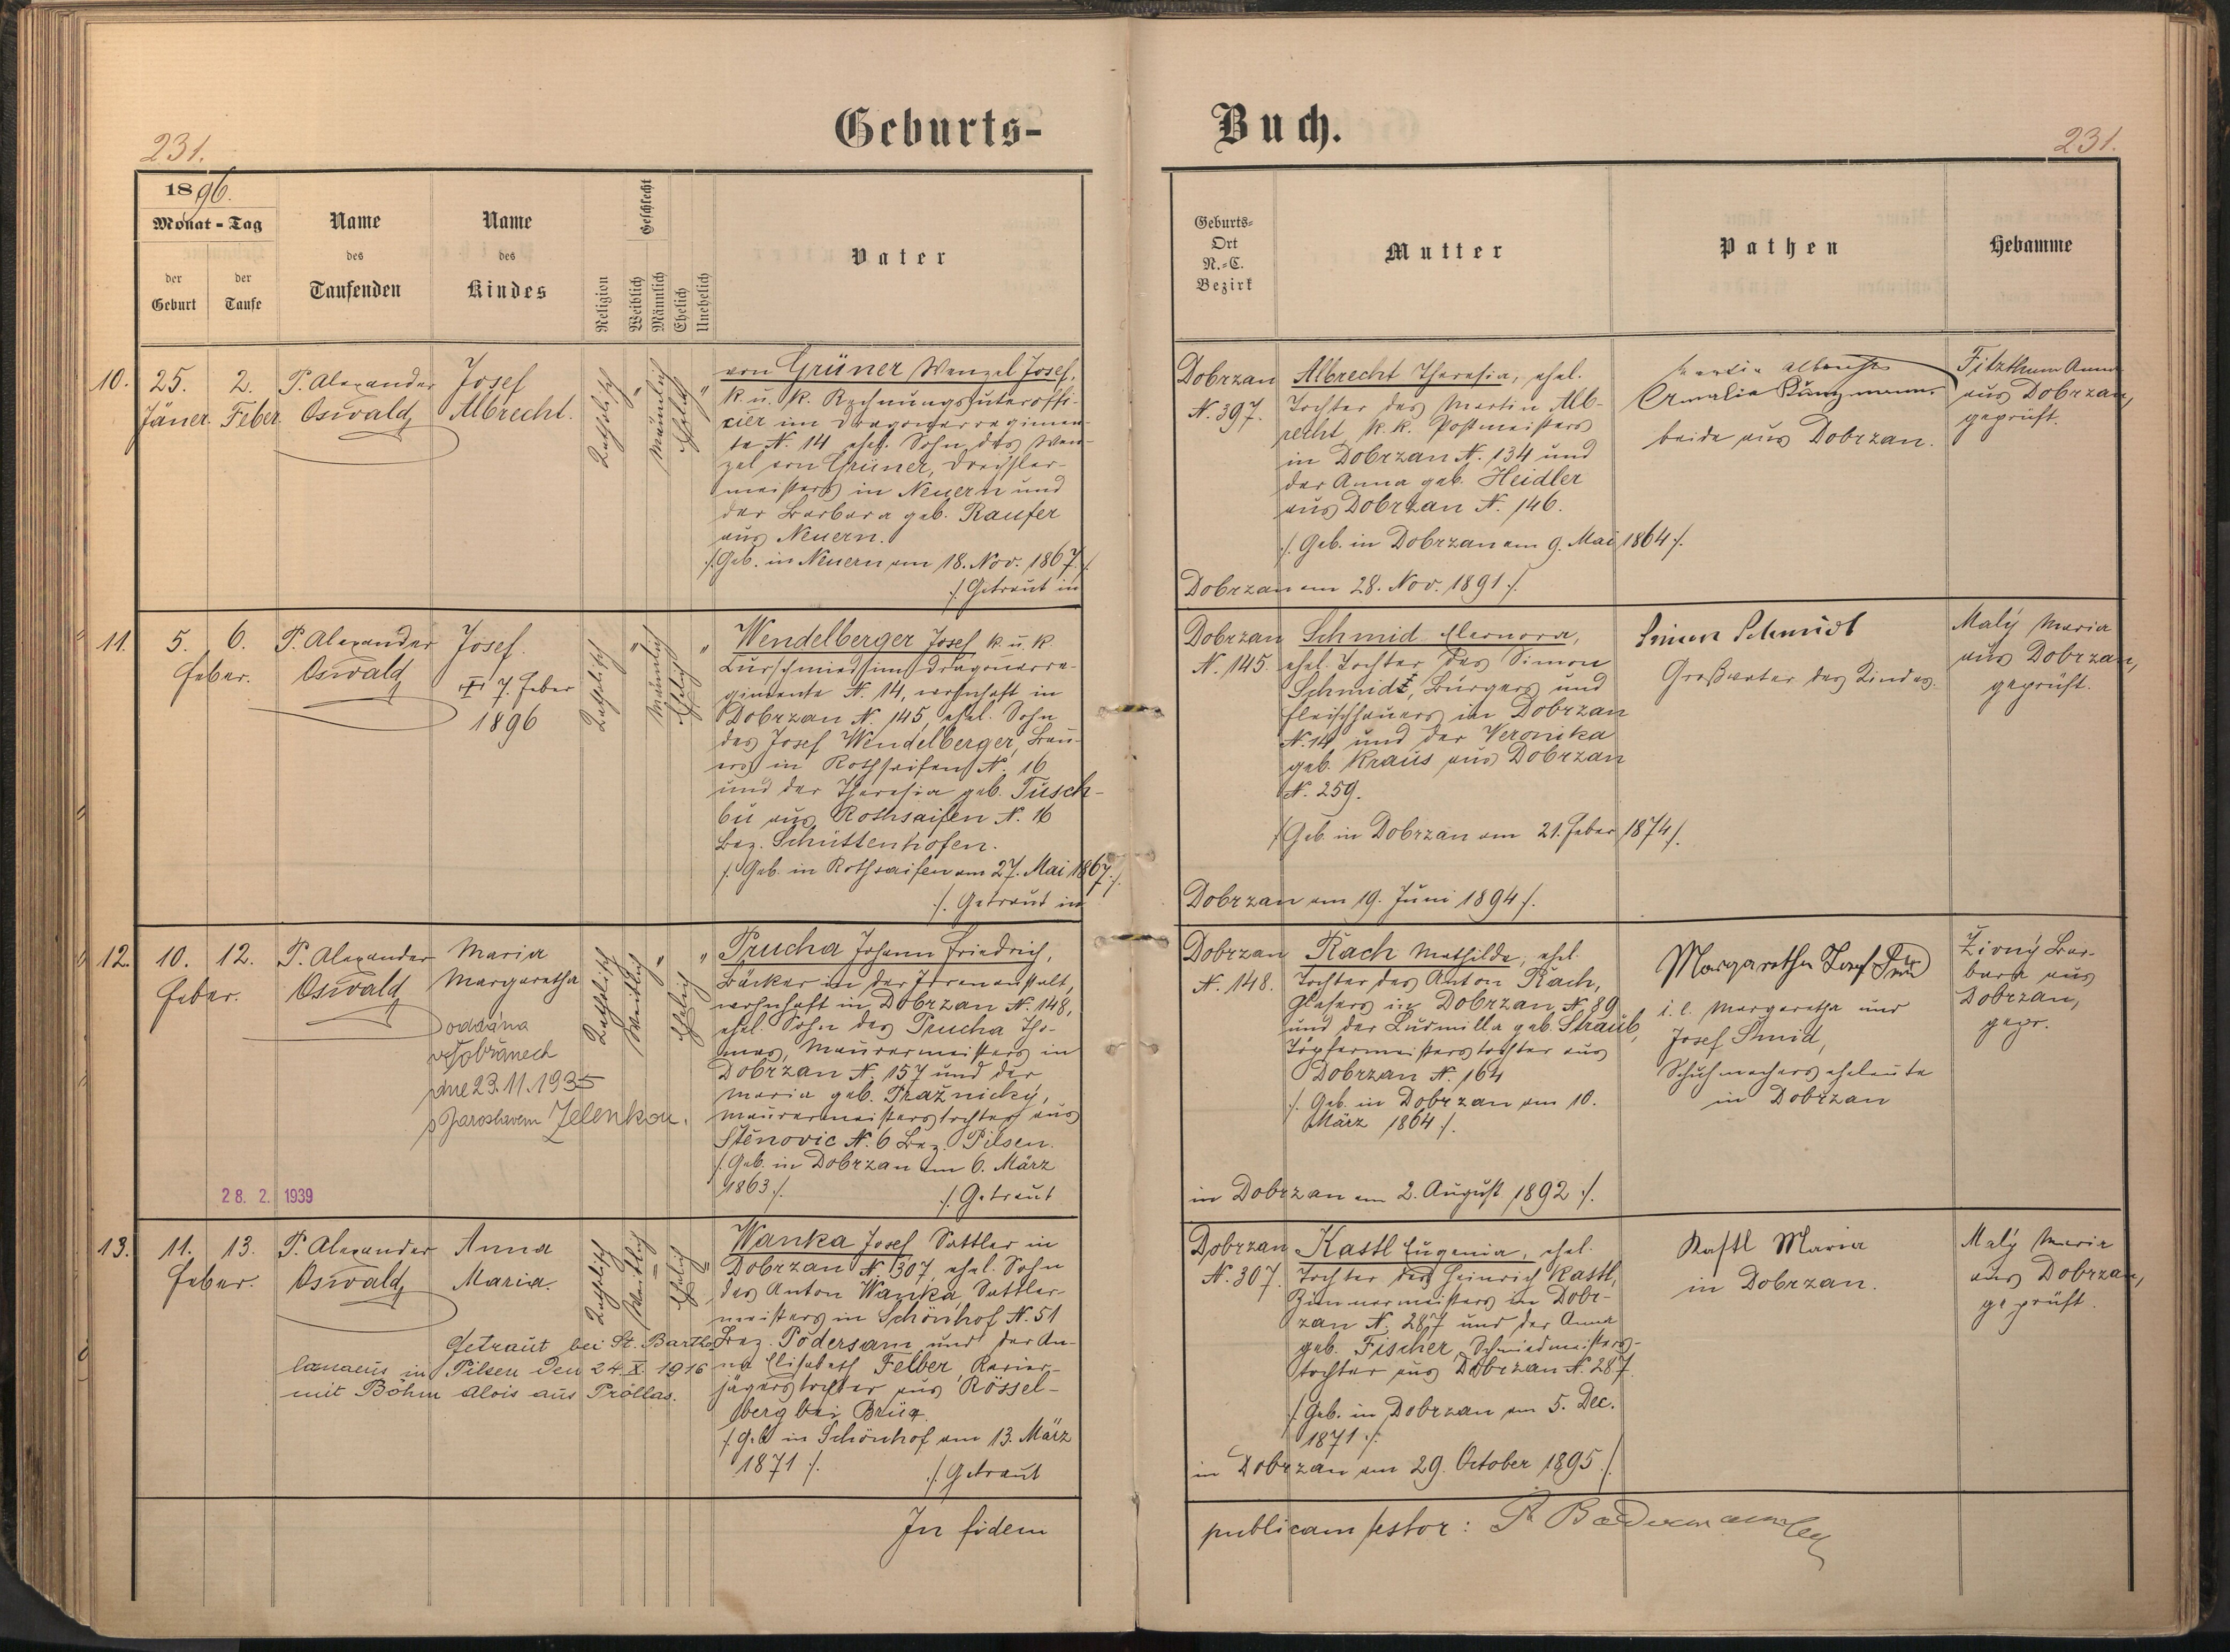 231.
Geburts-
Buch.
231.
1896.
Monat - Tag
der
Geburt
der
Taufe
Name
des
Taufenden
Name
des
Kindes
Religion
Geschlecht
Weiblich
Männlich
Ehelich
Unehelich
Vater
Geburts-
Ort
N.-C.
Bezirk
Mutter
Pathen
Hebamme
10.
25.
Jäner.
2.
Feber.
P. Alexander
Oswald
Josef
Albrecht.
Katholisch
"
Männlich
Ehelich
"
von Grüner Wenzel Josef,
k. u. k. Rechnungsunteroffi-
cier im Dragonerregimen-
te N. 14 ehel. Sohn des Wen-
zel von Grüner, Drechsler-
meisters in Neuern und
der Barbara geb. Raufer
aus Neuern.
/. Geb. in Neuern am 18. Nov. 1867 ./
/. Getraut in
Dobrzan
N. 397.
Albrecht Theresia, ehel.
Tochter des Martin Alb-
recht k. k. Postmeisters
in Dobrzan N. 134 und
der Anna geb. Heidler
aus Dobrzan N. 146.
/. Geb. in Dobrzan am 9. Mai 1864 /.
Dobrzan am 28. Nov. 1891 /.
Martin Albrecht
Amalia Kunzmann
beide aus Dobrzan.
Fitzthum Anna
aus Dobrzan,
geprüft.
11.
5.
Feber.
6.
P. Alexander
Oswald
Josef.
7. Feber
1896
Katholisch
"
Männlich
Ehelich
"
Wendelberger Josef k. u. k.
Kurschmied im Dragonerre-
gimente N. 14, wohnhaft in
Dobrzan N. 145, ehel. Sohn
des Josef Wendelberger, Bau-
ers in Rothseifen N. 16
und der Theresia geb. Tusch-
bu aus Rothsaifen N. 16
Bez. Schüttenhofen.
/. Geb. in Rothsaifen am 27. Mai 1867 ./.
/. Getraut in
Dobrzan
N. 145.
Schmid Eleonora,
ehel. Tochter des Simon
Schmidt, Bürgers und
Fleischhauers in Dobrzan
N. 14 und der Veronika
geb. Kraus aus Dobrzan
N. 259.
/. Geb. in Dobrzan am 21. Feber 1874 /.
Dobrzan am 19. Juni 1894 /.
Simon Schmidt
Großvater des Kindes.
Malý Maria
aus Dobrzan,
geprüft.
12.
10.
Feber.
12.
P. Alexander
Oswald
Maria
Margaretha
oddána
v Dobřanech
dne 23.11.1935
s Jaroslavem Zelenkou.
28. 2. 1939
Katholisch
Weiblich
"
Ehelich
"
Prucha Johann Friedrich,
Bäcker in der Irrenanstalt,
wohnhaft in Dobrzan N. 148,
ehel. Sohn des Prucha Tho-
mas, Maurermeisters in
Dobrzan N. 157 und der
Maria geb. Pražnický,
Maurermeisterstochter aus
Stěnovic N. 6 Bez. Pilsen.
/. Geb. in Dobrzan am 6. März
1863 /.
/. Getraut
Dobrzan
N. 148.
Rach Mathilde, ehel.
Tochter des Anton Rach,
Glasers in Dobrzan N. 89
und der Ludmilla geb. Straub,
Töpfermeisterstochter aus
Dobrzan N. 164
/. Geb. in Dobrzan am 10.
März 1864 /.
in Dobrzan am 2. August 1892 /.
Margaretha Josef
i. e. Margaretha und
Josef Smid,
Schuhmacherseheleute
in Dobrzan
Živný Bar-
bara aus
Dobrzan,
gepr.
13.
11.
Feber.
13.
P. Alexander
Oswald
Anna
Maria.
Getraut bei St. Bartho-
lomaeus in Pilsen den 24. X. 1916
mit Böhm Alois aus Pröllas.
Katholisch
Weiblich
"
Ehelich
"
Wanka Josef Sattler in
Dobrzan N. 307, ehel. Sohn
des Anton Wanka, Sattler-
meisters in Schönhof N. 51
Bez. Podersam und der An-
na Elisabeth Felber, Revier-
jägerstochter aus Rössel-
berg bei Brüx.
/. Geb. in Schönhof am 13. März
1871 /.
/. Getraut
Dobrzan
N. 307.
Kastl Eugenia, ehel.
Tochter des Heinrich Kastl,
Zimmermeisters in Dobr-
zan N. 287 und der Anna
geb. Fischer, Schmiedmeisters-
tochter aus Dobrzan N. 287.
/. Geb. in Dobrzan am 5. Dec.
1871 /.
in Dobrzan am 29. October 1895 /.
Kastl Maria
in Dobrzan.
Malý Maria
aus Dobrzan,
geprüft.
In fidem
publicam testor: